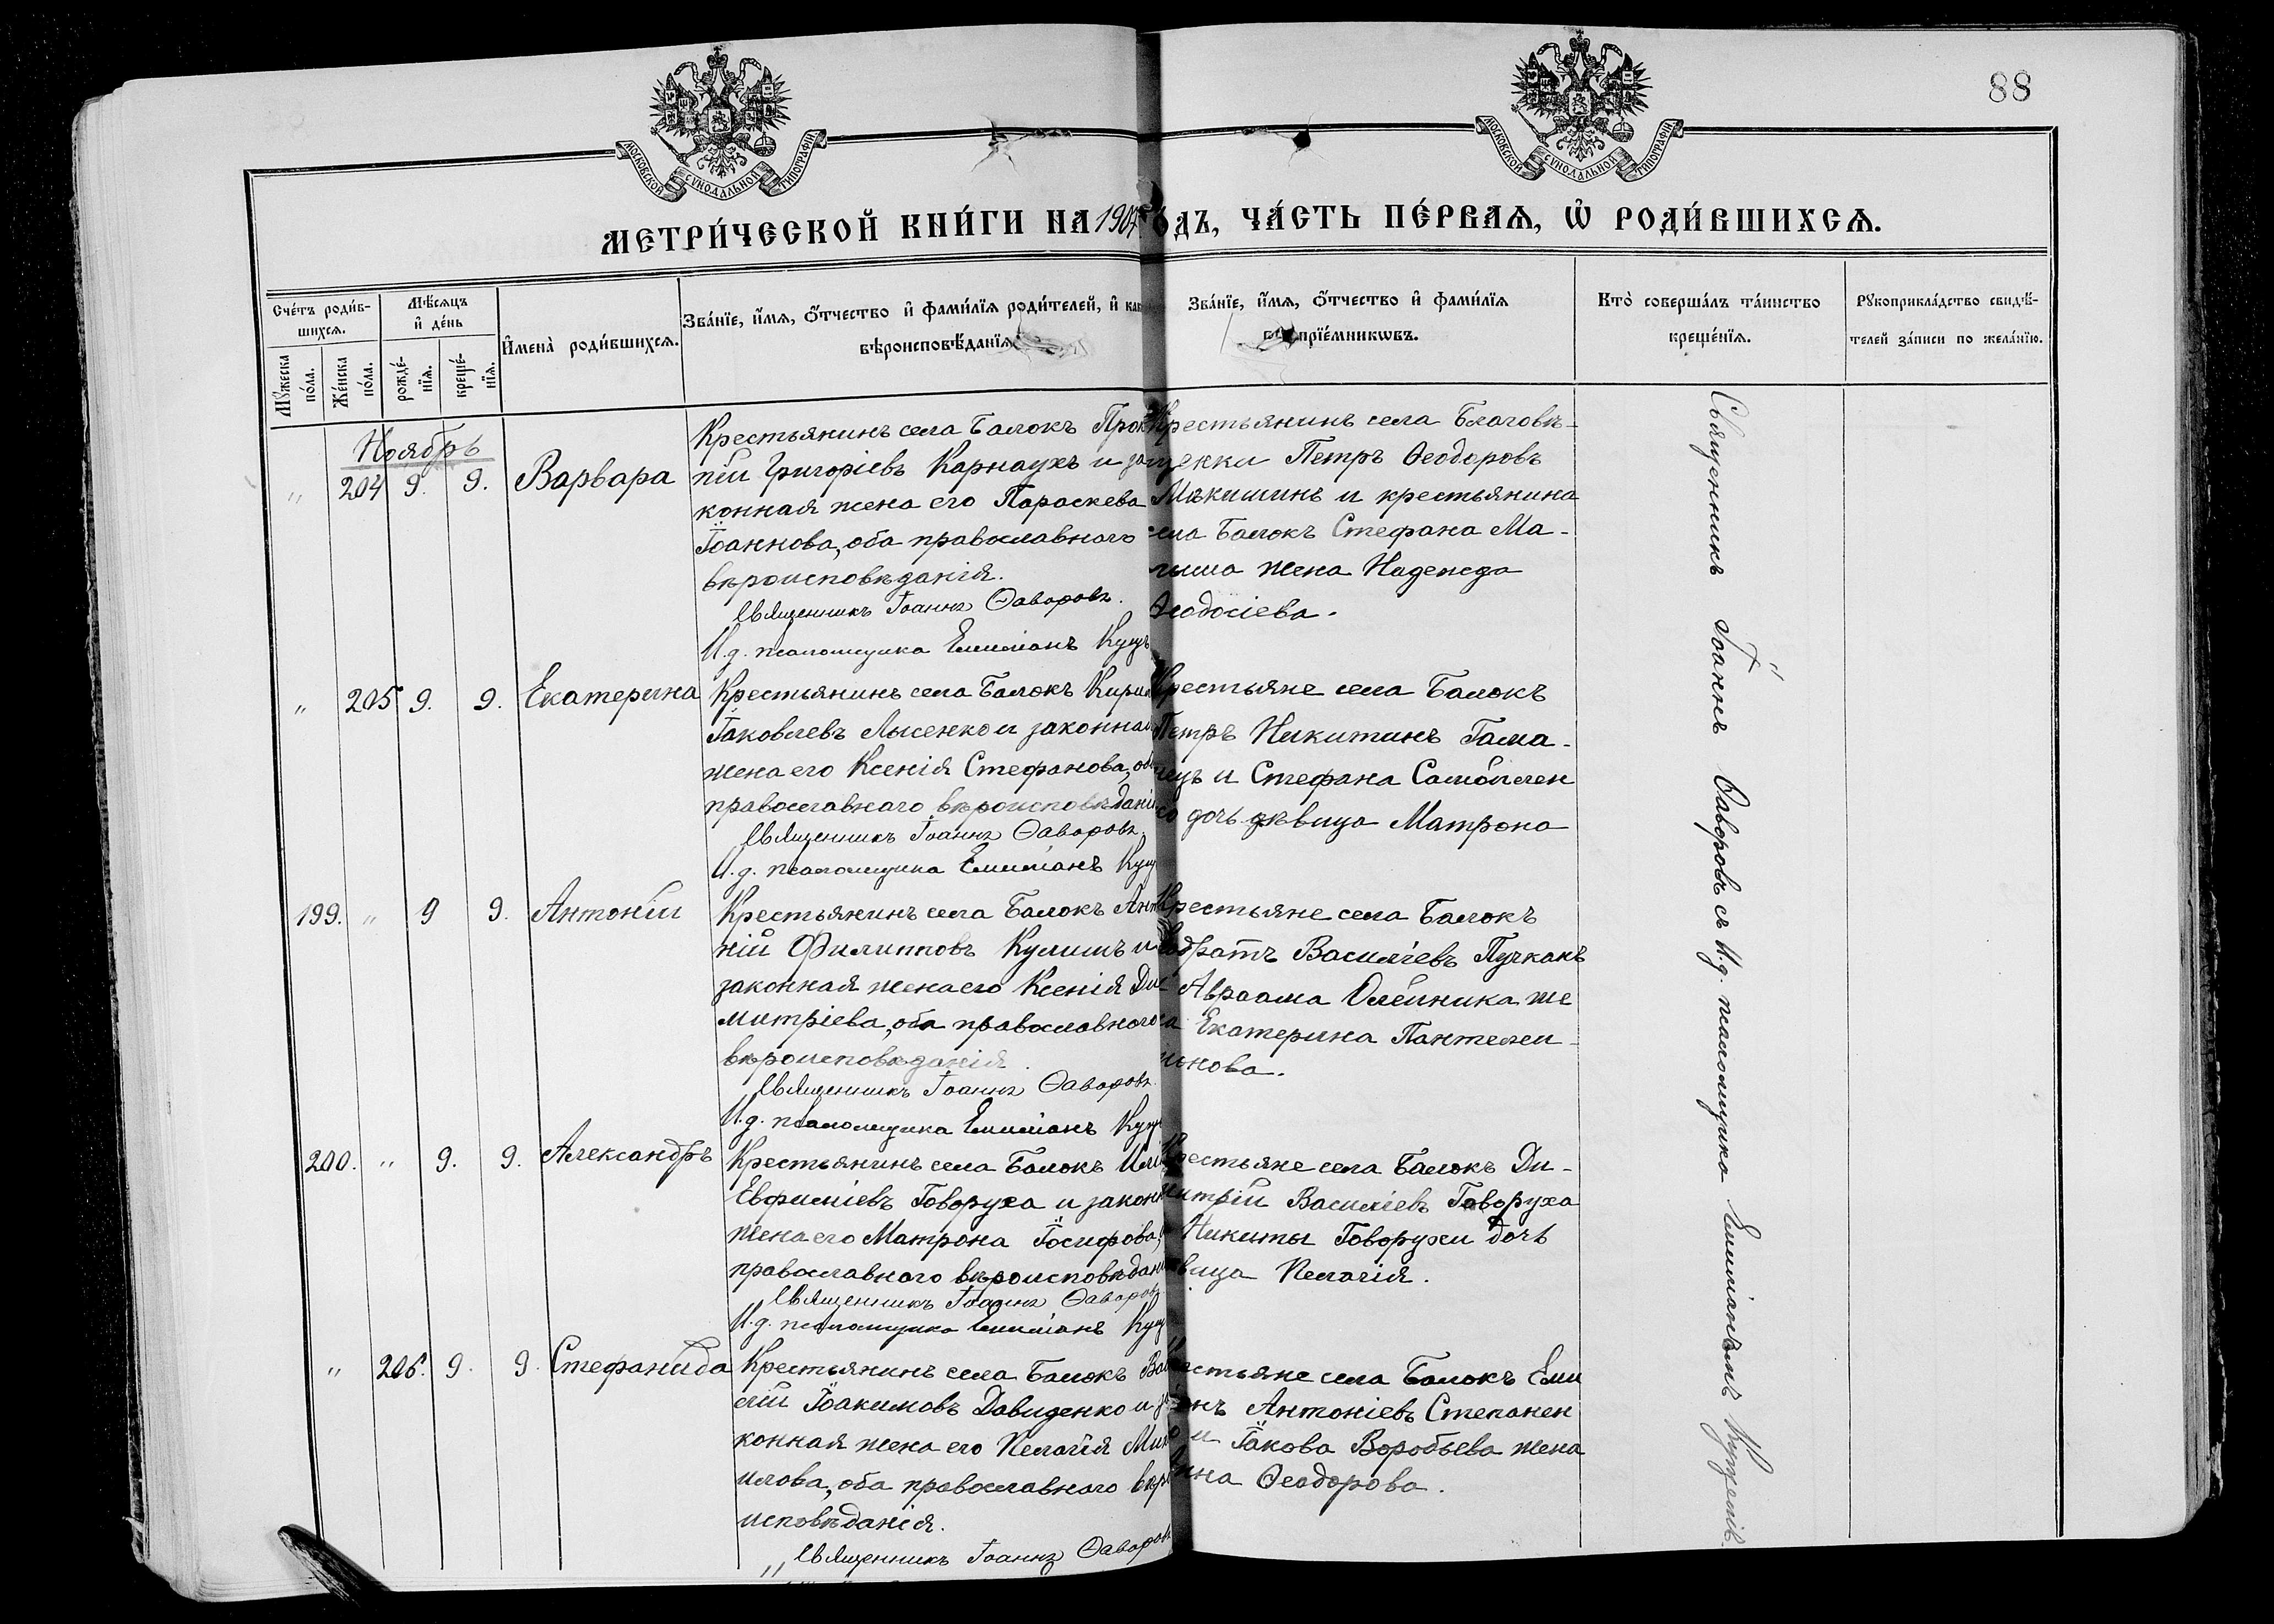 88
МОСКОВСКОЙ СѴНОДАЛЬНОЙ ТИПОГРАФІИ
МОСКОВСКОЙ СѴНОДАЛЬНОЙ ТИПОГРАФІИ
МЕТРИ́ЧЕСКОЙ КНИ́ГИ НА 1907 О́ДЪ, ЧА́СТЬ ПЕ́РВАѦ, Ѡ҆ РОДИ́ВШИХСѦ.
Сче́тъ роди́в-
шихсѧ.
Мꙋ́жеска
по́ла.
Же́нска
по́ла.
Мѣ́сяцъ
и҆ де́нь
рожде́-
нїѧ.
креще́-
нїѧ.
И҆мена̀ роди́вшихсѧ.
Зва́нїе, и҆́мѧ, ѻ҆́тчество и҆ фами́лїѧ роди́телей, и҆ как
вѣроисповѣ́данїѧ
Зва́нїе, и҆́мѧ, ѻ҆́тчество и҆ фами́лїѧ
прїе́мникѡвъ.
Кто̀ соверша́лъ та́инство
креще́нїѧ.
Рꙋкоприкла́дство свидѣ́-
телей за́писи по жела́нїю.
Ноябрь
" 204 9. 9. Варвара
Крестьянинъ села Балокъ Прок
пій Григоріевъ Карнаухъ и за
конная жена его Параскева
Іоаннова, оба православнаго
вѣроисповѣданія.
Священникъ Іоаннъ Ѳаворовъ.
И.д. псаломщика Емиліанъ Кущъ
Крестьянинъ села Благовѣ-
щенки Петръ Ѳеодоровъ
Мѣкишинъ и крестьянина
села Балокъ Стефана Ма-
лыша жена Надежда
Ѳеодосіева.
" 205 9. 9. Екатерина
Крестьянинъ села Балокъ Кирил
Іаковлевъ Лысенко и законная
жена его Ксенія Стефанова, оба
православнаго вѣроисповѣданія
Священникъ Іоаннъ Ѳаворовъ.
И.д. псаломщика Емиліанъ Кущ
Крестьяне села Балокъ
Петръ Никитинъ Гама-
лецъ и Стефана Самойлен
ко дочь дѣвица Матрона
199. " 9 9. Антоній
Крестьянинъ села Балокъ Анто
ній Филипповъ Кулишъ и
законная жена его Ксенія Ди
митріева, оба православнаго
вѣроисповѣданія.
Священникъ Іоаннъ Ѳаворовъ.
И.д. псаломщика Емиліанъ Кущ
Крестьяне села Балокъ
Кодратъ Василіевъ Пучканъ
Авраама Олейника же
на Екатерина Пантелеи-
монова.
200. " 9. 9. Александръ
Крестьянинъ села Балокъ Илія
Евфиміевъ Говоруха и законн
жена его Матрона Іосифова,
православнаго вѣроисповѣдані
Священникъ Іоаннъ Ѳаворовъ
И.д. псаломщика Емиліанъ Кущ
Крестьяне села Балокъ Ди-
митрій Василіевъ Говоруха
Никиты Говорухи дочь
дѣвица Пелагія.
" 206. 9. 9. Стефанида
Крестьянинъ села Балокъ Ва
силій Іоакимовъ Давиденко и за
конная жена его Пелагія Миха
илова, оба православнаго вѣро
исповѣданія.
Священникъ Іоаннъ Ѳаворовъ
Крестьяне села Балокъ Еми
ліанъ Антоніевъ Степанен
ко и Іакова Воробьева жена
Анна Ѳеодорова.
Священникъ Іоаннъ Ѳаворовъ съ И.д. псаломщика Емиліаномъ